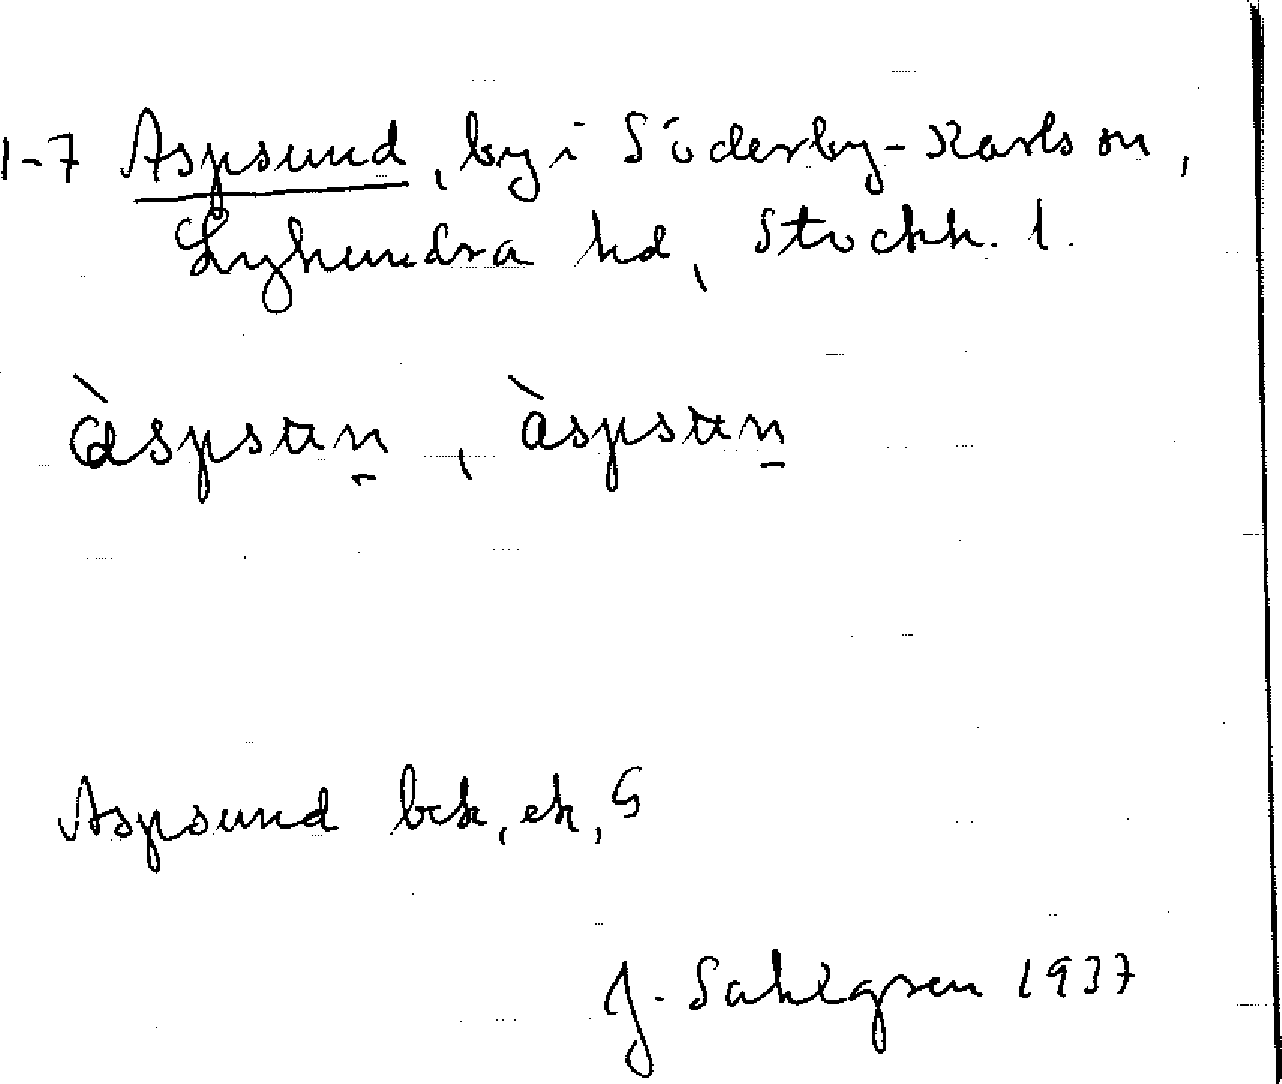 1-7 Aspsund, by i Söderby-Karlson,
Lyhundra hd, Stockh. l.
àspstan̠, àspstan̠
Aspsund bck, ek, G
J. Sahlgren 1937